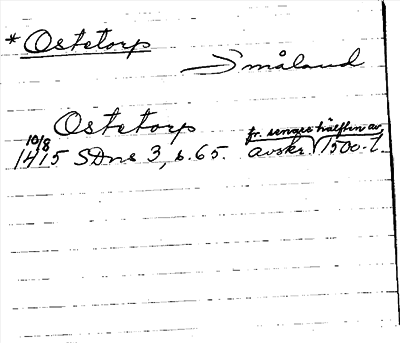 * Ostetorp
Småland
Ostetorp
10/8 fr. senare hälften av
1415 SDns 3, s. 65. avskr. 1500-t.